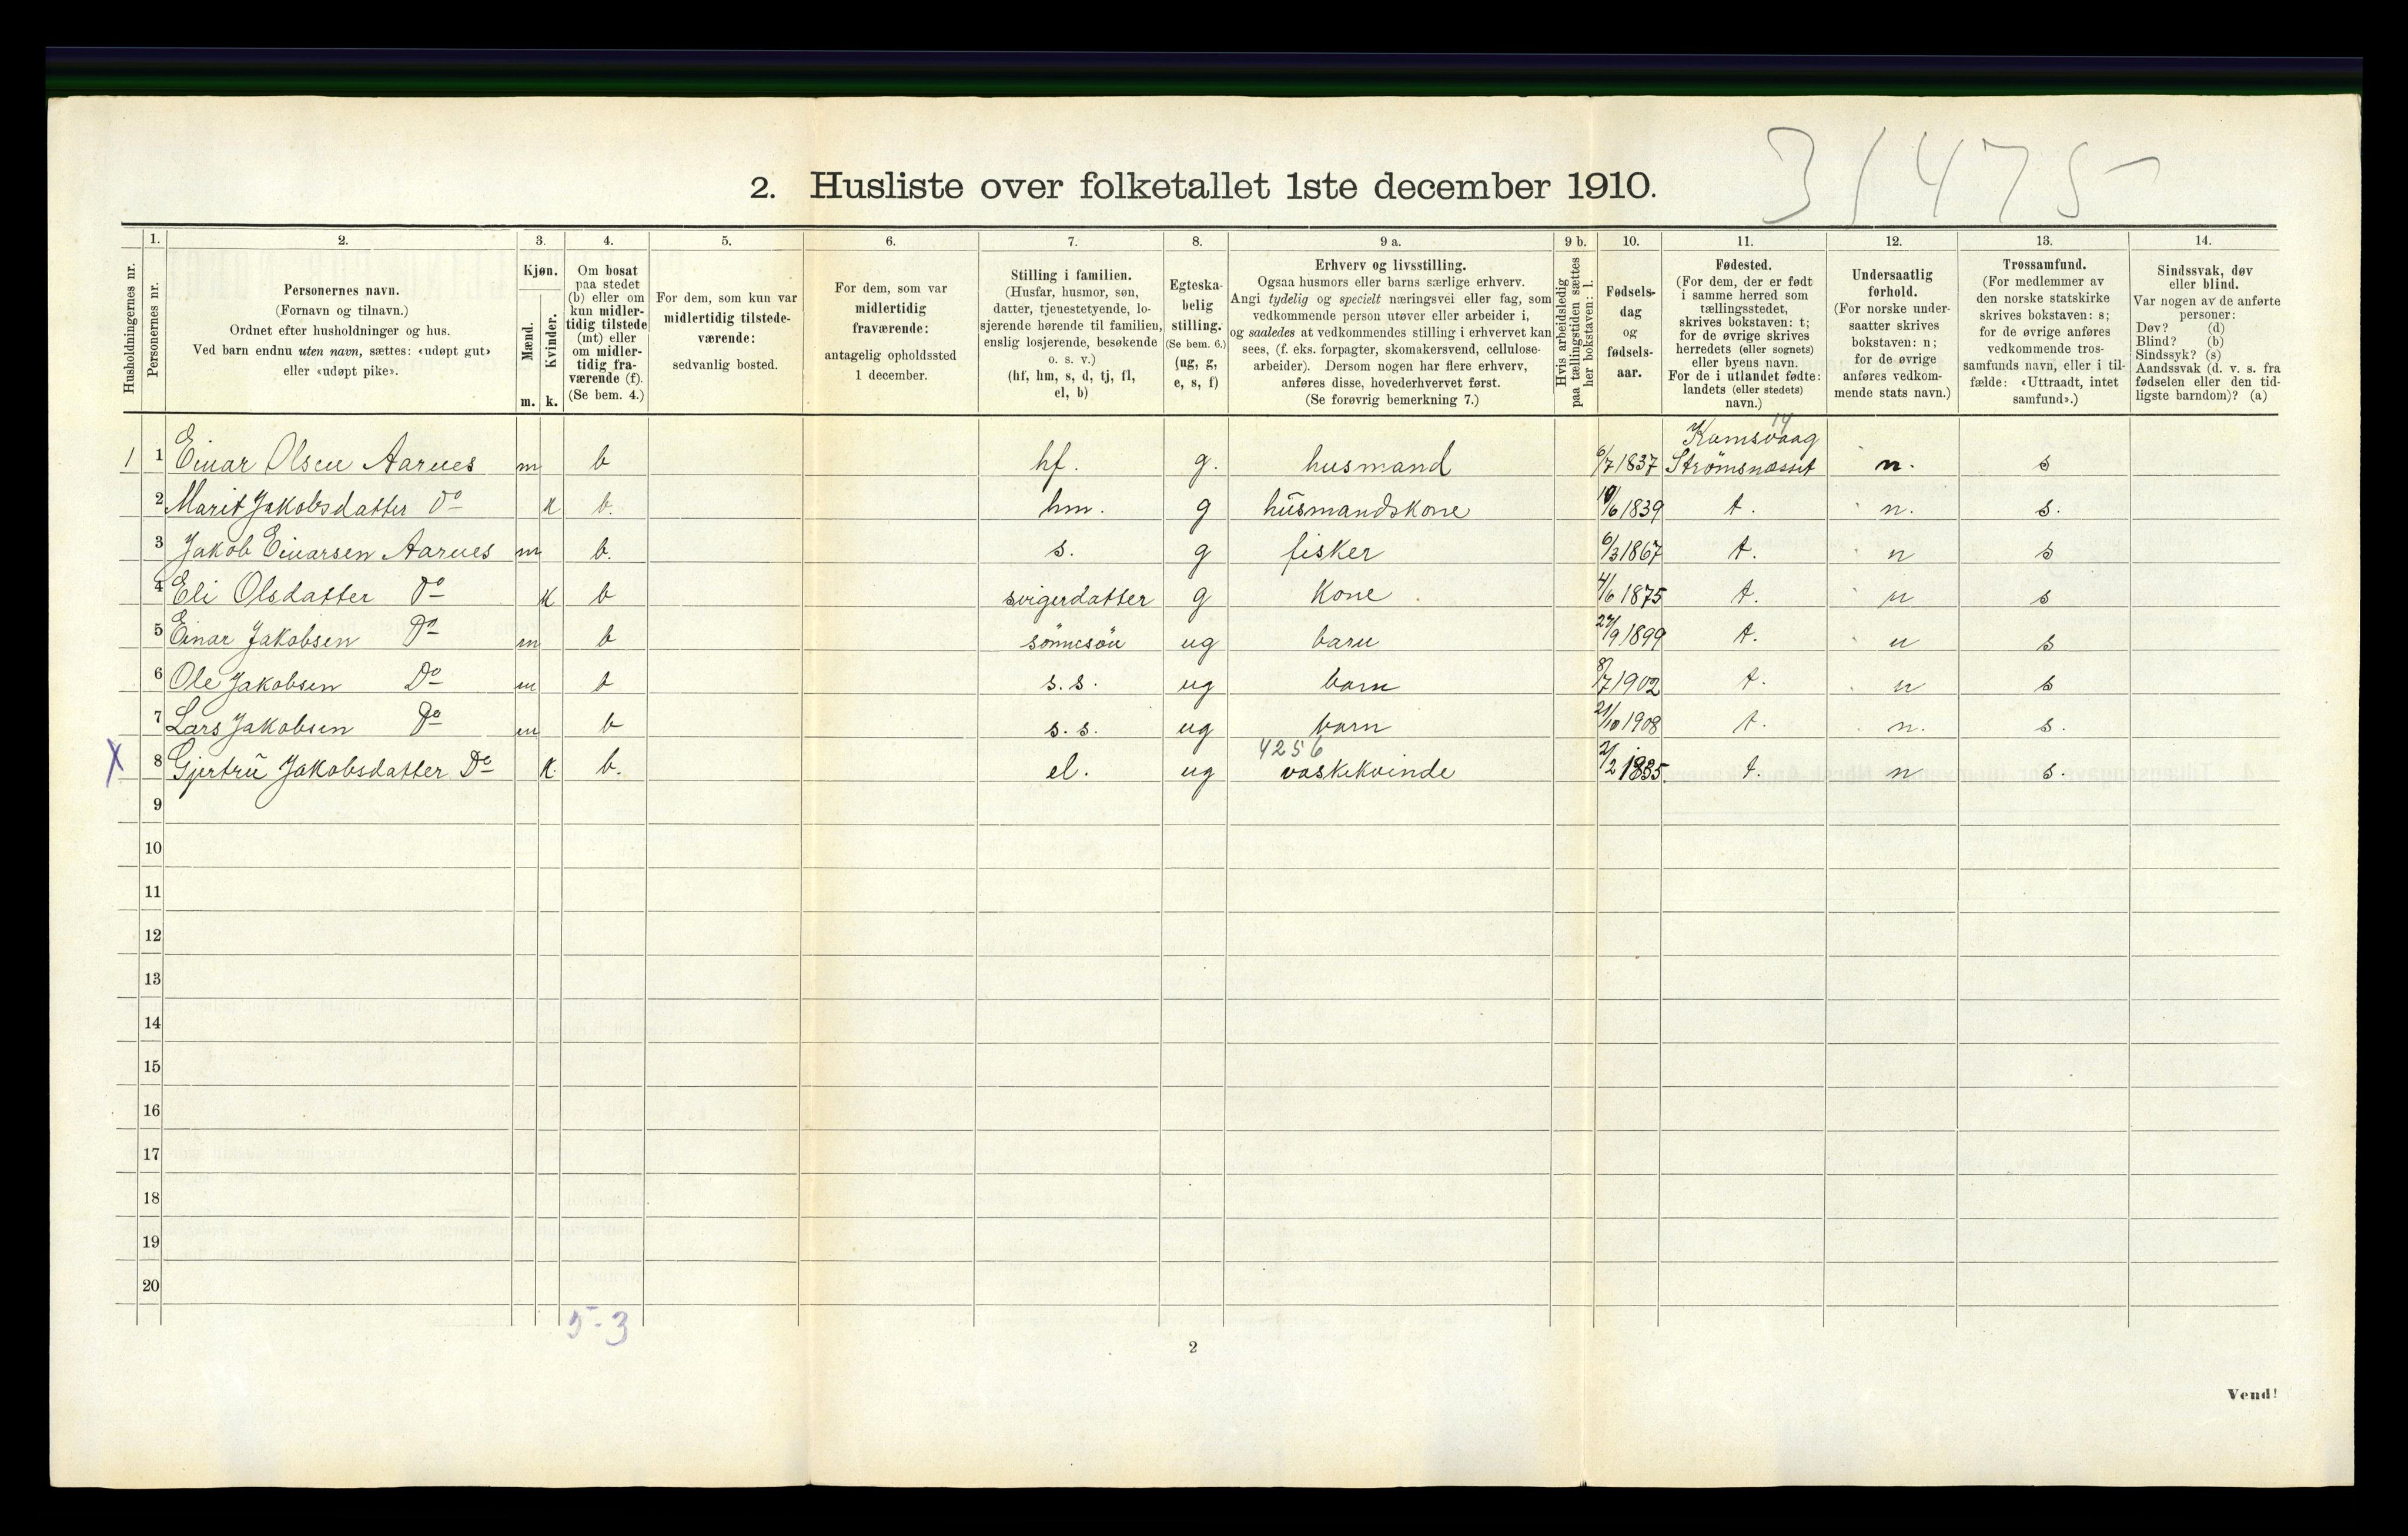 31475
2. Husliste over folketallet 1ste december 1910.
Husholdningernes nr.
1.
Personernes nr.
2.
Personernes navn.
(Fornavn og tilnavn.)
Ordnet efter husholdninger og hus.
Ved barn endnu uten navn, sættes: «udøpt gut»
eller «udøpt pike».
3.
Kjøn.
Mænd.
Kvinder.
m. k.
4.
Om bosat
paa stedet
(b) eller om
kun midler-
tidig tilstede
(mt) eller
om midler-
tidig fra-
værende (f).
(Se bem. 4.)
5.
For dem, som kun var
midlertidig tilstede-
værende:
sedvanlig bosted.
6.
For dem, som var
midlertidig
fraværende:
antagelig opholdssted
1 december.
7.
Stilling i familien.
(Husfar, husmor, søn,
datter, tjenestetyende, lo-
sjerende hørende til familien,
enslig losjerende, besøkende
o. s. v.)
(hf, hm, s, d, tj, fl,
el, b)
8.
Egteska-
belig
stilling.
(Se bem. 6.)
(ug, g,
e, s, f)
9 a.
Erhverv og livsstilling.
Ogsaa husmors eller barns særlige erhverv.
Angi tydelig og specielt næringsvei eller fag, som
vedkommende person utøver eller arbeider i,
og saaledes at vedkommendes stilling i erhvervet kan
sees, (f. eks. forpagter, skomakersvend, cellulose-
arbeider). Dersom nogen har flere erhverv,
anføres disse, hovederhvervet først.
(Se forøvrig bemerkning 7.)
9 b.
Hvis arbeidsledig
paa tællingstiden sættes
her bokstaven: l.
10.
Fødsels-
dag
og
fødsels-
aar.
11.
Fødested.
(For dem, der er født
i samme herred som
tællingsstedet,
skrives bokstaven: t;
for de øvrige skrives
herredets (eller sognets)
eller byens navn.
For de i utlandet fødte:
landets (eller stedets)
navn.)
12.
Undersaatlig
forhold.
(For norske under-
saatter skrives
bokstaven: n;
for de øvrige
anføres vedkom-
mende stats navn.)
13.
Trossamfund.
(For medlemmer av
den norske statskirke
skrives bokstaven: s;
for de øvrige anføres
vedkommende tros-
samfunds navn, eller i til-
fælde: «Uttraadt, intet
samfund».)
14.
Sindssvak, døv
eller blind.
Var nogen av de anførte
personer:
Døv? (d)
Blind? (b)
Sindssyk? (s)
Aandssvak (d. v. s. fra
fødselen eller den tid-
ligste barndom)? (a)
14
Kornsvaag
1 1 Einar Olsen Aarnes m b hf. g. husmand 6/7 1837 Strömsnæsset n. s
2 Marit Jakobsdatter Do k b. hm. g husmandskone 10/6 1839 t. n. s.
3 Jakob Einarsen Aarnes m b. s. g fisker 6/3 1867 t. n s
4 Eli Olsdatter Do k b svigerdatter g Kone 4/6 1875 t. n s
5 Einar Jakobsen Do m b sönnesön ug barn 27/9 1899 t. n s
6 Ole Jakobsen Do m b s. s. ug barn 8/7 1902 t. n s
7 Lars Jakobsen Do m b s. s. ug barn 21/10 1908 t. n. s.
4256
X 8 Gjertrü Jakobsdatter Do k. b. el. ug vaskekvinde 2/2 1835. t. n s.
9
10
11
12
13
14
15
16
17
18
19
20
5-3
2
Vend!